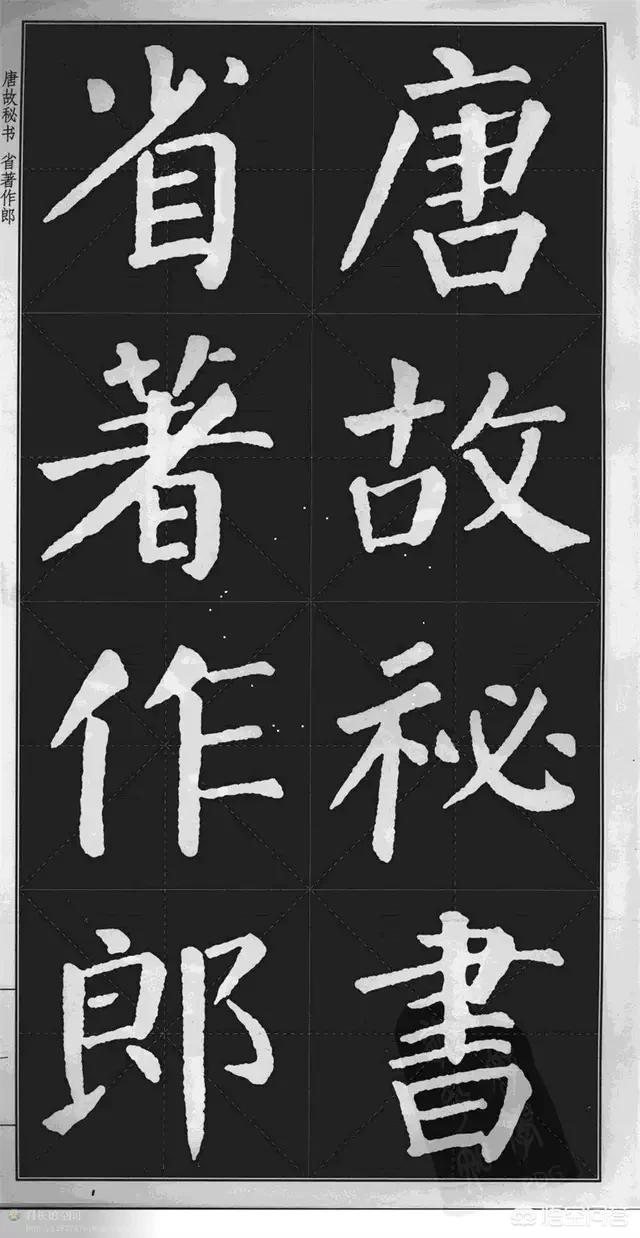 唐故祕書
省著作郎
唐故秘书 省著作郎
悟空问答